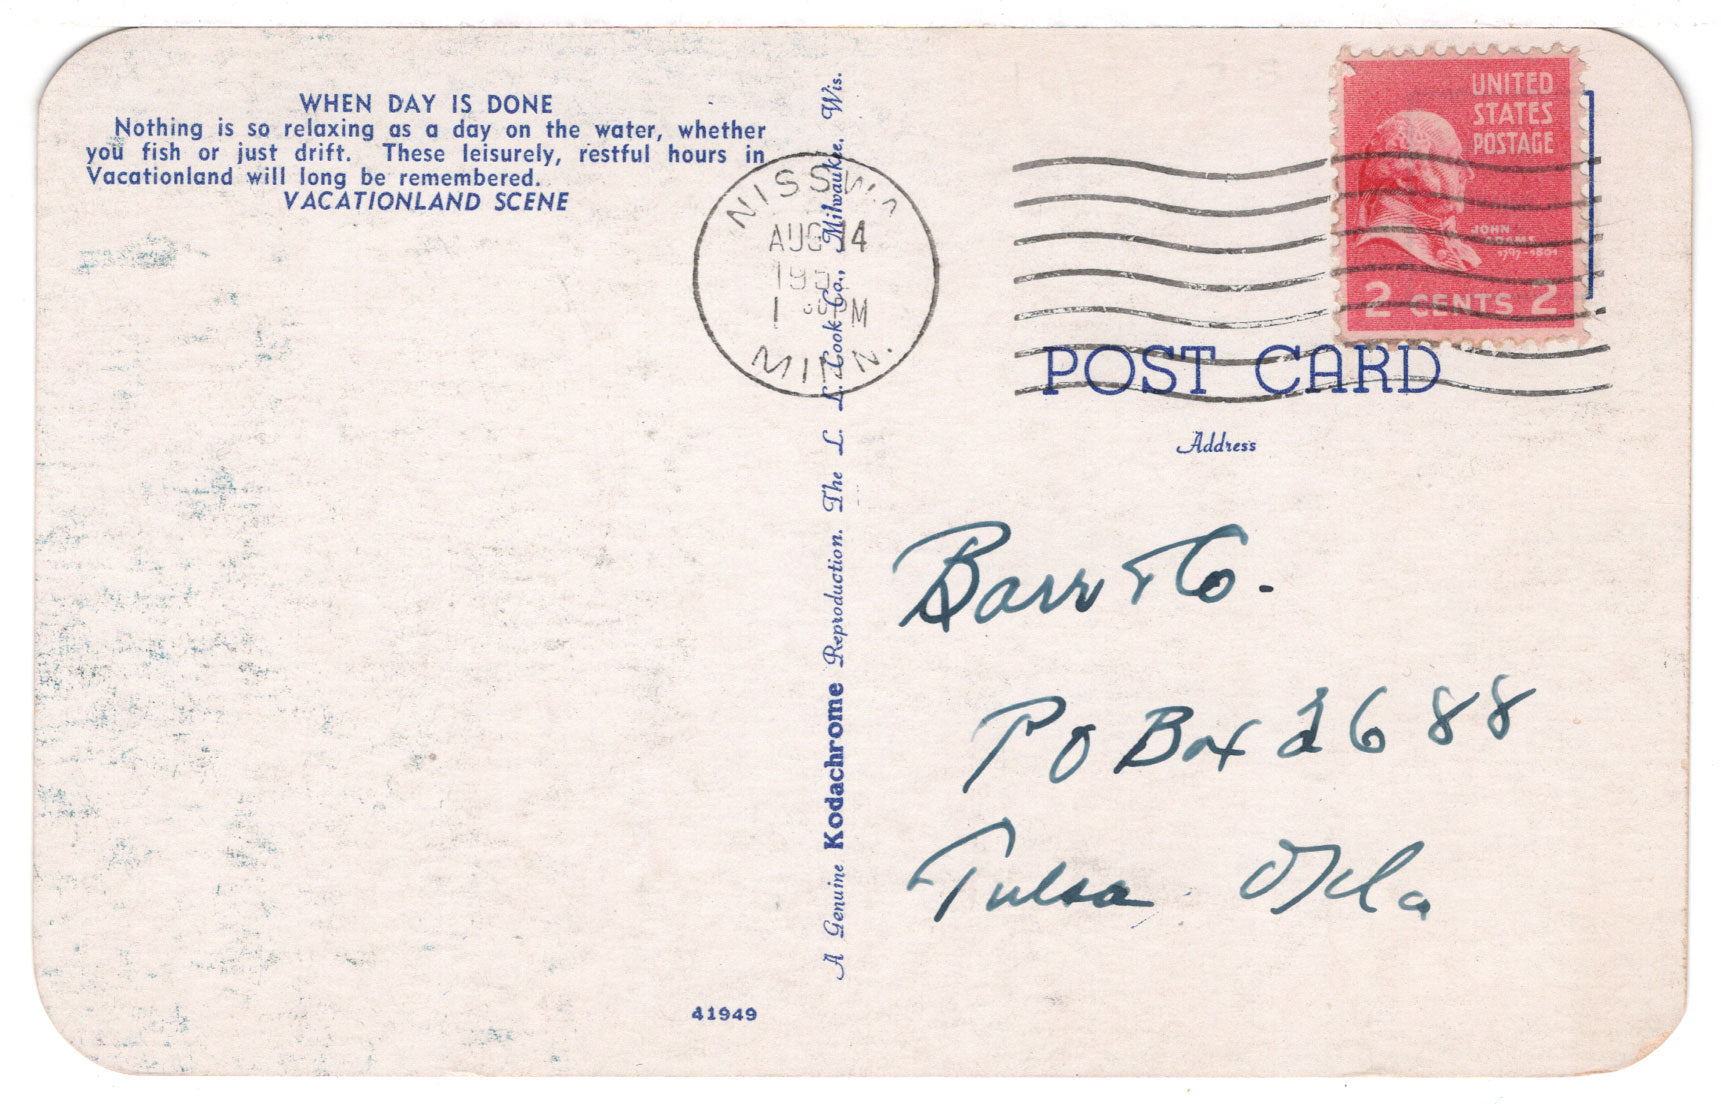 WHEN DAY IS DONE
Nothing is so relaxing as a day on the water, whether
you fish or just drift. These leisurely, restful hours in
Vacationland will long be remembered.
VACATIONLAND SCENE
NISSWA
AUG 14
PM
MINN.
UNITED
STATES
POSTAGE
JOHN
ADAMS
1797-1801
2 CENTS 2
POST CARD
Address
Barr & Co.
PO Box 2688
Tulsa Okla
A Genuine Kodachrome Reproduction. The L. L. Cook Co., Milwaukee, Wis.
41949